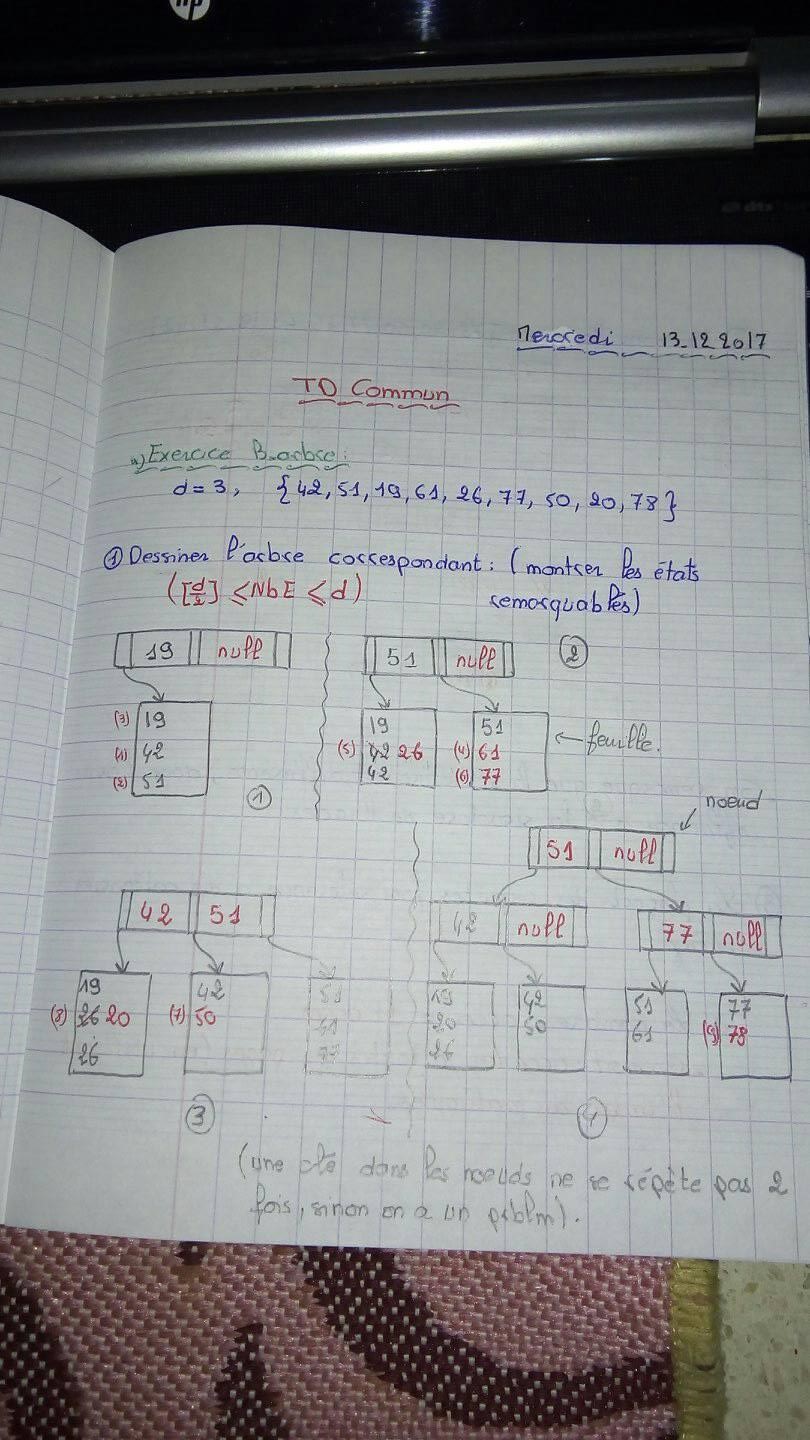 hp
Mercredi 13-12 2017
TD Commun
a) Exercice B-arbre:
d=3, {42, 51, 19, 61, 26, 77, 50, 20, 78}
① Dessiner l'arbre correspondant: (montrer les états
([d/2] ⩽ NbE ⩽ d) remarquables)
19 null
(3) 19
(1) 42
(2) 51
①
51 null ②
19
(5) 42 26
42
51
(4) 61
(6) 77
← feuille.
noeud
42 51
19
(8) 26 20
26
42
(7) 50
51
61
77
③
51 null
42 null
77 null
19
20
26
42
50
51
61
77
(9) 78
④
(une clé dans les noeuds ne se répète pas 2
fois, sinon on a un prblm).